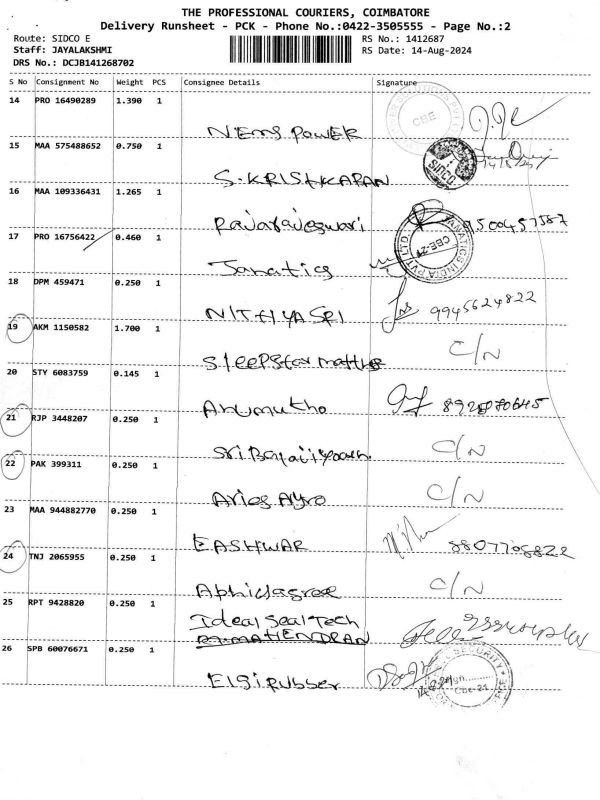 THE PROFESSIONAL COURIERS, COIMBATORE
Delivery Runsheet - PCK - Phone No.:0422-3505555 - Page No.:2
Route: SIDCO E
RS No.: 1412687
Staff: JAYALAKSHMI
RS Date: 14-Aug-2024
DRS No.: DCJB141268702
S No Consignment No Weight PCS Consignee Details Signature
14 PRO 16490289 1.390 1
CBE
NEMS POWER
15 MAA 575488652 0.750 1
S.KRISHKARAN
16 MAA 109336431 1.265 1
Rajarajeswari
17 PRO 16756422 0.460 1
Janatics
18 DPM 459471 0.250 1
NITHYA SRI 9945624822
19 AKM 1150582 1.700 1
C/N
20 STY 6083759 0.145 1
Arumutho
21 RJP 3448207 0.250 1
C/N
22 PAK 399311 0.250 1
C/N
Aries Agro
23 MAA 944882770 0.250 1
EASHWAR 8807708822
24 TNJ 2065955 0.250 1
C/N
25 RPT 9428820 0.250 1
Ideal Seal Tech
26 SPB 60076671 0.250 1
Elgi rubber